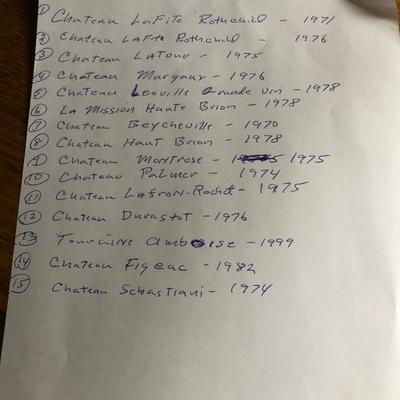 ① Chateau LaFite Rothchild - 1971
② Chateau LaFite Rothchild - 1976
③ Chateau LaTour - 1975
④ Chateau Margaux - 1976
⑤ Chateau Leoville Grande Vin - 1978
⑥ La Mission Haute Brion - 1978
⑦ Chateau Beycheville - 1970
⑧ Chateau Haut Brion - 1978
⑨ Chateau Montrose - 1975
⑩ Chateau Palmer - 1974
⑪ Chateau Lafron-Rochet - 1975
⑫ Chateau - 1976
⑬ Touraine Amboise - 1999
⑭ Chateau Figeac - 1982
⑮ Chateau Sebastiani - 1974